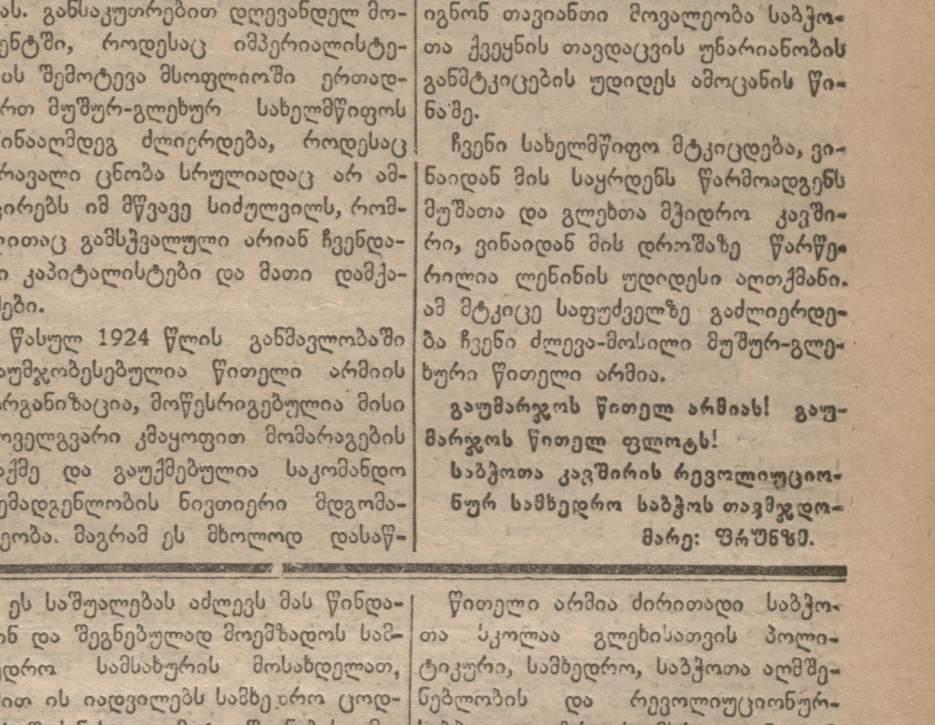 ას. განსაკუთრებით დღევანდელ მო-
ენტში, როდესაც იმპერიალისტე-
ის შემოტევა მსოფლიოში ერთად-
რთ მუშურ-გლეხურ სახელმწიფოს
ინააღმდეგ ძლიერდება, როდესაც
რავალი ცნობა სრულიადაც არ ამ-
ცირებს იმ მწვავე სიძულვილს, რომ-
ლითაც გამსჭვალული არიან ჩვენდა-
ი კაპიტალისტები და მათი დამქა-
ები.
წასულ 1924 წლის განმავლობაში
აუმჯობესებულია წითელი არმიის
რგანიზაცია, მოწესრიგებულია მისი
ოველგვარი კმაყოფით მომარაგების
აქმე და გაუქმებულია საკომანდო
ემადგენლობის ნივთიერი მდგომა-
ეობა. მაგრამ ეს მხოლოდ დასაწ-
იგნონ თავიანთი მოვალეობა საბჭო-
თა ქვეყნის თავდაცვის უნარიანობის
განმტკიცების უდიდეს ამოცანის წი-
ნაშე.
ჩვენი სახელმწიფო მტკიცდება, ვი-
ნაიდან მის საყრდენს წარმოადგენს
მუშათა და გლეხთა მჭიდრო კავში-
რი, ვინაიდან მის დროშაზე წარწე-
რილია ლენინის უდიდესი აღთქმანი.
ამ მტკიცე საფუძველზე გაძლიერდე-
ბა ჩვენი ძლევა-მოსილი მუშურ-გლე-
ხური წითელი არმია.
გაუმარჯოს წითელ არმიას! გაუ-
მარჯოს წითელ ფლოტს!
საბჭოთა კავშირის რევოლიუციო-
ნურ სამხედრო საბჭოს თავმჯდო-
მარე: ფრუნზე.
ეს საშუალებას აძლევს მას წინდა-
ინ და შეგნებულად მოემზადოს სამ-
ედრო სამსახურის მოსახდელათ,
ით ის იადვილებს სამხედრო ცოდ-
წითელი არმია ძირითადი საბჭო-
თა სკოლაა გლეხისათვის პოლი-
ტიკური, სამხედრო, საბჭოთა აღმშე-
ნებლობის და რევოლიუციონურ-